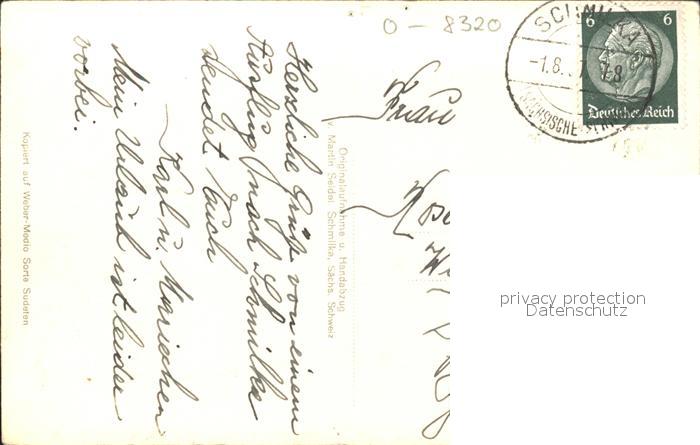 O - 8320
SCHMILKA
-1.8.37. 7-8
(SÄCHSISCHE
6 6
Deutsches Reich
Herzliche Grüße von einem
Ausflug nach Schmilka
sendet Euch
Karl u. Mariechen
Mein Urlaub ist leider
vorbei.
Originalaufnahme u. Handabzug
v. Martin Seidel Schmilka, Sächs. Schweiz
Kopiert auf Weber-Medio Sorte Sudeten
Frau
privacy protection
Datenschutz